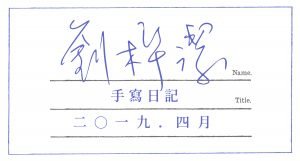 劉梓潔
Name.
手寫日記
Title.
二〇一九.四月